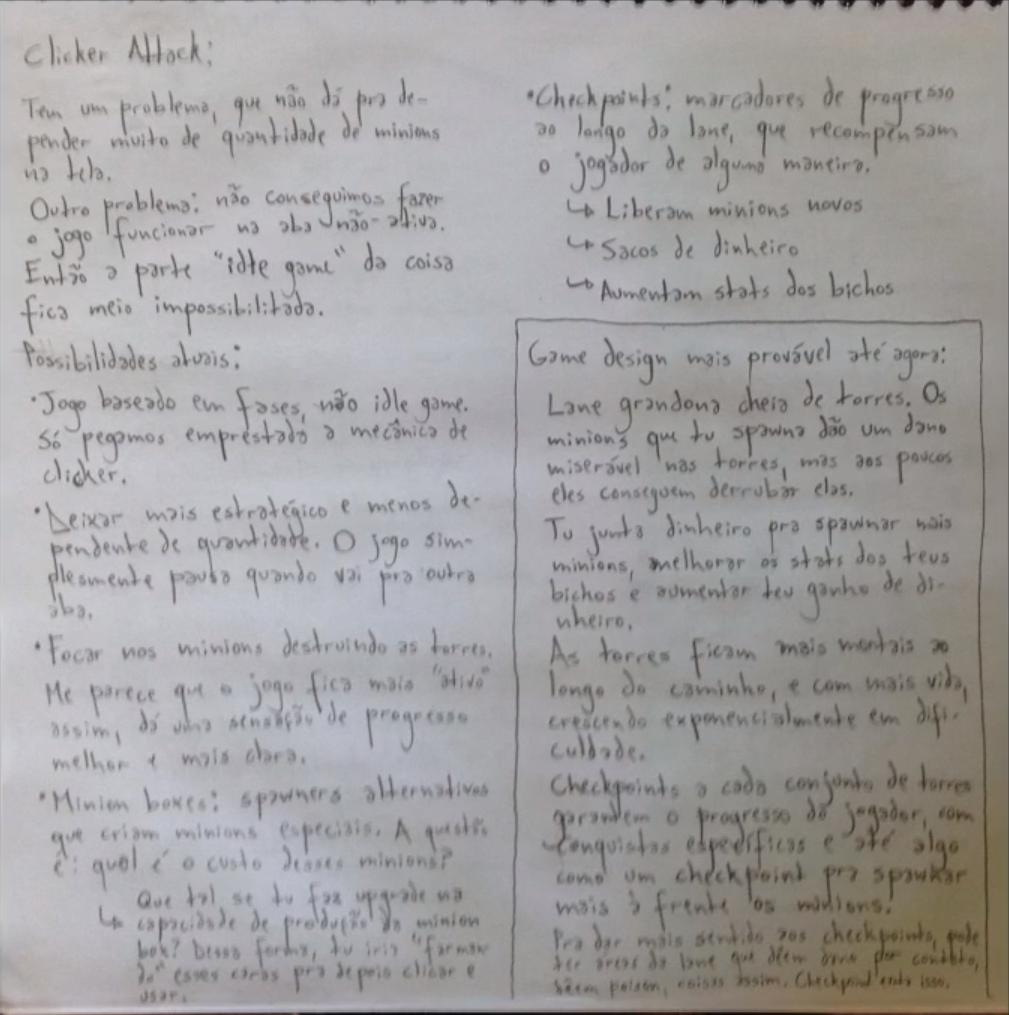 Clicker Attack:
Tem um problema, que não dá pra de-
pender muito de quantidade de minions
na tela.
Outro problema: não conseguimos fazer
o jogo funcionar na aba não-ativa.
Então a parte "idle game" da coisa
fica meio impossibilitada.
Possibilidades atuais:
·Jogo baseado em fases, não idle game.
Só pegamos emprestado a mecânica de
clicker.
·Deixar mais estratégico e menos de-
pendente de quantidade. O jogo sim-
plesmente pausa quando vai pra outra
aba.
·Focar nos minions destruindo as torres.
Me parece que o jogo fica mais "ativo"
assim, dá uma sensação de progresso
melhor e mais clara.
·Minion boxes: spawners alternativos
que criam minions especiais. A questão
é: qual é o custo desses minions?
↳ Que tal se tu faz upgrade na
capacidade de produção da minion
box? Dessa forma, tu iria "farman
do" esses caras pra depois clicar e
usar.
·Checkpoints: marcadores de progresso
ao longo da lane, que recompensam
o jogador de alguma maneira.
↳ Liberam minions novos
↳ Sacos de dinheiro
↳ Aumentam stats dos bichos
Game design mais provável até agora:
Lane grandona cheia de torres. Os
minions que tu spawna dão um dano
miserável nas torres, mas aos poucos
eles conseguem derrubar elas.
Tu junta dinheiro pra spawnar mais
minions, melhorar os stats dos teus
bichos e aumentar teu ganho de di-
nheiro.
As torres ficam mais mortais ao
longo do caminho, e com mais vida,
crescendo exponencialmente em difi-
culdade.
Checkpoints a cada conjunto de torres
garantem o progresso do jogador, com
conquistas específicas e até algo
como um checkpoint pra spawnar
mais à frente os minions.
Pra dar mais sentido aos checkpoints, pode
ter áreas da lane que dêem dano por contato,
dêem poison, coisas assim. Checkpoint isso.